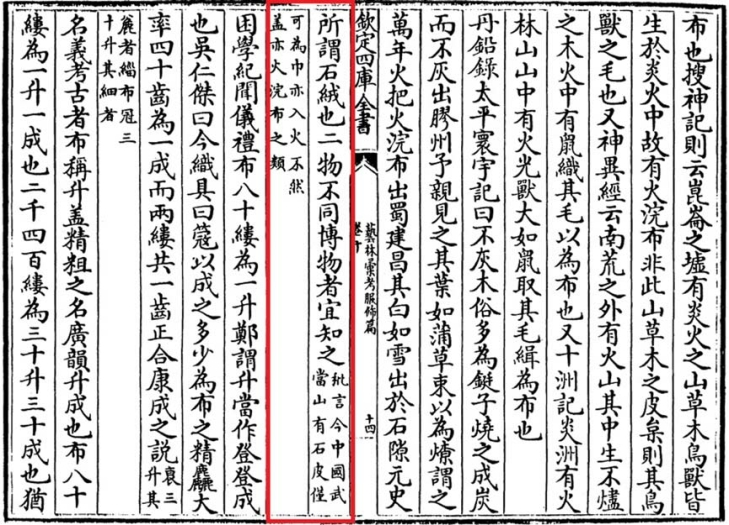 布也搜神記則云崑崙之墟有炎火之山草木鳥獸皆
生於炎火中故有火浣布非此山草木之皮枲則其鳥
獸之毛也又神異經云南荒之外有火山其中生不燼
之木火中有鼠織其毛以為布也又十洲記炎洲有火
林山山中有火光獸大如鼠取其毛緝為布也
丹鉛錄太平寰宇記曰不灰木俗多為鋌子燒之成炭
而不灰出膠州予親見之其葉如蒲草束以為燎謂之
萬年火把火浣布出蜀建昌其白如雪出於石隙元史
欽定四庫全書
藝林彙考服飾篇
卷十
十四
所謂石絨也二物不同博物者宜知之
玭言今中國武
當山有石皮僅
可為巾亦入火不然
蓋亦火浣布之類
困學紀聞儀禮布八十縷為一升鄭謂升當作登登成
也吳仁傑曰今織具曰簆以成之多少為布之精麤大
率四十齒為一成而兩縷共一齒正合康成之說
衰三
升其
麄者緇布冠三
十升其細者
名義考古者布稱升蓋精粗之名廣韻升成也布八十
縷為一升一成也二千四百縷為三十升三十成也猶